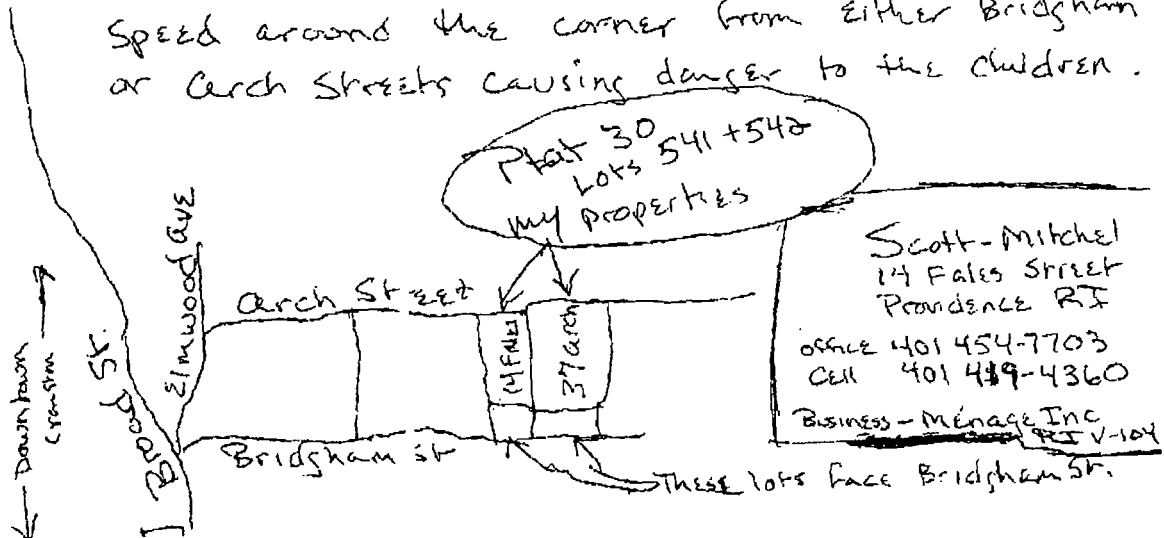 Speed around the corner from Either Bridgham
or Arch Streets causing danger to the children.
Plat 30
Lots 541 + 542
my properties
Scott-Mitchel
14 Fales Street
Providence RI
office 401 454-7703
Cell 401 419-4360
Business - Ménage Inc
RI V-104
Elmwood Ave
Arch Street
14 Fales
37 Arch
Downtown
Cranston
Broad St.
Bridgham St
These lots face Bridgham St.